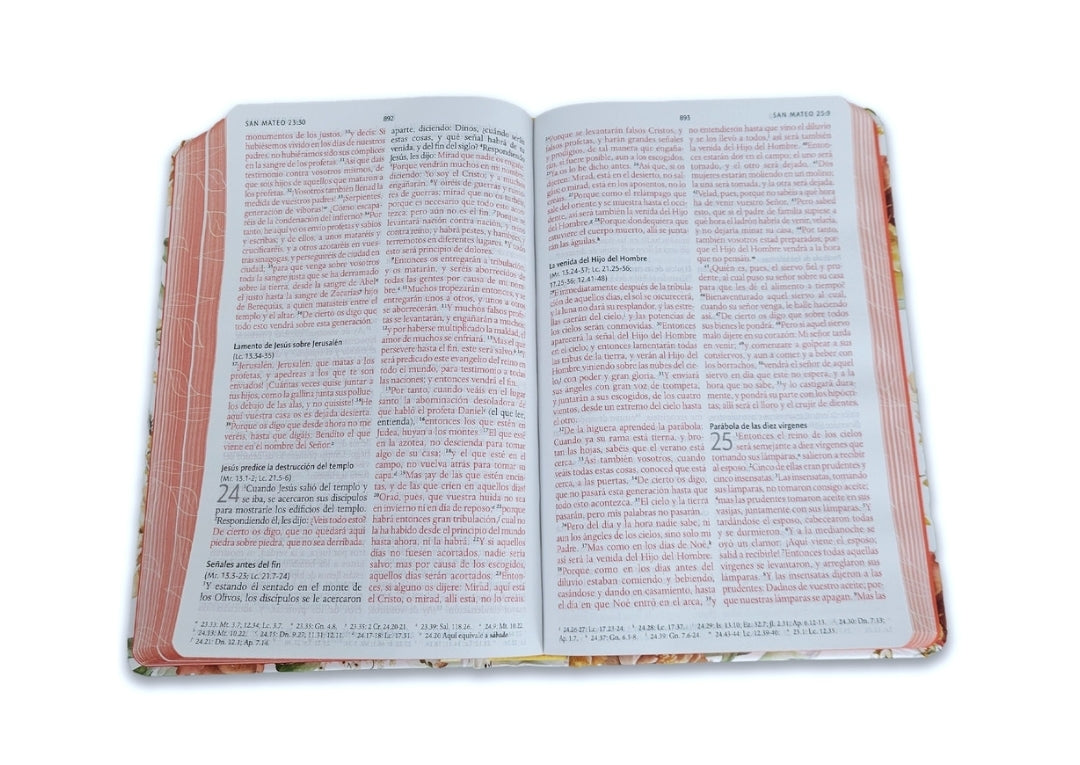 SAN MATEO 23:30
892
monumentos de los justos, ³⁰y decís: Si
hubiésemos vivido en los días de nuestros
padres, no hubiéramos sido sus cómplices
en la sangre de los profetas. ³¹Así que dais
testimonio contra vosotros mismos, de
que sois hijos de aquellos que mataron a
los profetas. ³²¡Vosotros también llenad la
medida de vuestros padres! ³³¡Serpientes,
generación de víboras! ¿Cómo escapa-
réis de la condenación del infierno? ³⁴Por
tanto, he aquí yo os envío profetas y sabios
y escribas; y de ellos, a unos mataréis y
crucificaréis, y a otros azotaréis en vues-
tras sinagogas, y perseguiréis de ciudad en
ciudad; ³⁵para que venga sobre vosotros
toda la sangre justa que se ha derramado
sobre la tierra, desde la sangre de Abel
el justo hasta la sangre de Zacarías hijo
de Berequías, a quien matasteis entre el
templo y el altar. ³⁶De cierto os digo que
todo esto vendrá sobre esta generación.
Lamento de Jesús sobre Jerusalén
(Lc. 13.34-35)
³⁷¡Jerusalén, Jerusalén, que matas a los
profetas, y apedreas a los que te son
enviados! ¡Cuántas veces quise juntar a
tus hijos, como la gallina junta sus pollue-
los debajo de las alas, y no quisiste! ³⁸He
aquí vuestra casa os es dejada desierta.
³⁹Porque os digo que desde ahora no me
veréis, hasta que digáis: Bendito el que
viene en el nombre del Señor.
Jesús predice la destrucción del templo
(Mr. 13.1-2; Lc. 21.5-6)
24 ¹Cuando Jesús salió del templo y
se iba, se acercaron sus discípulos
para mostrarle los edificios del templo.
²Respondiendo él, les dijo: ¿Veis todo esto?
De cierto os digo, que no quedará aquí
piedra sobre piedra, que no sea derribada.
Señales antes del fin
(Mr. 13.3-23; Lc. 21.7-24)
³Y estando él sentado en el monte de
los Olivos, los discípulos se le acercaron
aparte, diciendo: Dinos, ¿cuándo serán
estas cosas, y qué señal habrá de tu
venida, y del fin del siglo? ⁴Respondiendo
Jesús, les dijo: Mirad que nadie os engañe.
⁵Porque vendrán muchos en mi nombre,
diciendo: Yo soy el Cristo; y a muchos
engañarán. ⁶Y oiréis de guerras y rumo-
res de guerras; mirad que no os turbéis,
porque es necesario que todo esto acon-
tezca; pero aún no es el fin. ⁷Porque se
levantará nación contra nación, y reino
contra reino; y habrá pestes, y hambres, y
terremotos en diferentes lugares. ⁸Y todo
esto será principio de dolores.
⁹Entonces os entregarán a tribulación,
y os matarán, y seréis aborrecidos de
todas las gentes por causa de mi nom-
bre. ¹⁰Muchos tropezarán entonces, y se
entregarán unos a otros, y unos a otros
se aborrecerán. ¹¹Y muchos falsos profe-
tas se levantarán, y engañarán a muchos;
¹²y por haberse multiplicado la maldad, el
amor de muchos se enfriará. ¹³Mas el que
persevere hasta el fin, éste será salvo. ¹⁴Y
será predicado este evangelio del reino en
todo el mundo, para testimonio a todas
las naciones; y entonces vendrá el fin.
¹⁵Por tanto, cuando veáis en el lugar
santo la abominación desoladora de
que habló el profeta Daniel (el que lee,
entienda), ¹⁶entonces los que estén en
Judea, huyan a los montes. ¹⁷El que esté
en la azotea, no descienda para tomar
algo de su casa; ¹⁸y el que esté en el
campo, no vuelva atrás para tomar su
capa. ¹⁹Mas ¡ay de las que estén encin-
tas, y de las que críen en aquellos días!
²⁰Orad, pues, que vuestra huida no sea
en invierno ni en día de reposo; ²¹porque
habrá entonces gran tribulación, cual no
la ha habido desde el principio del mundo
hasta ahora, ni la habrá. ²²Y si aquellos
días no fuesen acortados, nadie sería
salvo; mas por causa de los escogidos,
aquellos días serán acortados. ²³Enton-
ces, si alguno os dijere: Mirad, aquí está
el Cristo, o mirad, allí está, no lo creáis.
23.33: Mt. 3.7; 12.34; Lc. 3.7. 23.35: Gn. 4.8. 23.35: 2 Cr. 24.20-21. 23.39: Sal. 118.26. 24.9: Mt. 10.22.
24.13: Mt. 10.22. 24.15: Dn. 9.27; 11.31; 12.11. 24.17-18: Lc. 17.31. 24.20: Aquí equivale a sábado.
24.21: Dn. 12.1; Ap. 7.14.
893
SAN MATEO 25:9
²⁴Porque se levantarán falsos Cristos, y
falsos profetas, y harán grandes señales
y prodigios, de tal manera que engaña-
rán, si fuere posible, aun a los escogidos.
²⁵Ya os lo he dicho antes. ²⁶Así que, si os
dijeren: Mirad, está en el desierto, no sal-
gáis; o mirad, está en los aposentos, no lo
creáis. ²⁷Porque como el relámpago que
sale del oriente y se muestra hasta el occi-
dente, así será también la venida del Hijo
del Hombre. ²⁸Porque dondequiera que
estuviere el cuerpo muerto, allí se junta-
rán las águilas.
La venida del Hijo del Hombre
(Mr. 13.24-37; Lc. 21.25-36;
17.25-36; 12.41-48)
²⁹E inmediatamente después de la tribula-
ción de aquellos días, el sol se oscurecerá,
y la luna no dará su resplandor, y las estre-
llas caerán del cielo, y las potencias de
los cielos serán conmovidas. ³⁰Entonces
aparecerá la señal del Hijo del Hombre
en el cielo; y entonces lamentarán todas
las tribus de la tierra, y verán al Hijo del
Hombre viniendo sobre las nubes del cie-
lo, con poder y gran gloria. ³¹Y enviará
sus ángeles con gran voz de trompeta,
y juntarán a sus escogidos, de los cuatro
vientos, desde un extremo del cielo hasta
el otro.
³²De la higuera aprended la parábola:
Cuando ya su rama está tierna, y bro-
tan las hojas, sabéis que el verano está
cerca. ³³Así también vosotros, cuando
veáis todas estas cosas, conoced que está
cerca, a las puertas. ³⁴De cierto os digo,
que no pasará esta generación hasta que
todo esto acontezca. ³⁵El cielo y la tierra
pasarán, pero mis palabras no pasarán.
³⁶Pero del día y la hora nadie sabe, ni
aun los ángeles de los cielos, sino sólo mi
Padre. ³⁷Mas como en los días de Noé,
así será la venida del Hijo del Hombre.
³⁸Porque como en los días antes del
diluvio estaban comiendo y bebiendo,
casándose y dando en casamiento, hasta
el día en que Noé entró en el arca, ³⁹y
no entendieron hasta que vino el diluvio
y se los llevó a todos, así será también
la venida del Hijo del Hombre. ⁴⁰Enton-
ces estarán dos en el campo; el uno será
tomado, y el otro será dejado. ⁴¹Dos
mujeres estarán moliendo en un molino;
la una será tomada, y la otra será dejada.
⁴²Velad, pues, porque no sabéis a qué hora
ha de venir vuestro Señor. ⁴³Pero sabed
esto, que si el padre de familia supiese a
qué hora el ladrón habría de venir, velaría,
y no dejaría minar su casa. ⁴⁴Por tanto,
también vosotros estad preparados; por-
que el Hijo del Hombre vendrá a la hora
que no pensáis.
⁴⁵¿Quién es, pues, el siervo fiel y pru-
dente, al cual puso su señor sobre su casa
para que les dé el alimento a tiempo?
⁴⁶Bienaventurado aquel siervo al cual,
cuando su señor venga, le halle haciendo
así. ⁴⁷De cierto os digo que sobre todos
sus bienes le pondrá. ⁴⁸Pero si aquel siervo
malo dijere en su corazón: Mi señor tarda
en venir; ⁴⁹y comenzare a golpear a sus
consiervos, y aun a comer y a beber con
los borrachos, ⁵⁰vendrá el señor de aquel
siervo en día que éste no espera, y a la
hora que no sabe, ⁵¹y lo castigará dura-
mente, y pondrá su parte con los hipócri-
tas; allí será el lloro y el crujir de dientes.
Parábola de las diez vírgenes
25 ¹Entonces el reino de los cielos
será semejante a diez vírgenes que
tomando sus lámparas, salieron a recibir
al esposo. ²Cinco de ellas eran prudentes y
cinco insensatas. ³Las insensatas, tomando
sus lámparas, no tomaron consigo aceite;
⁴mas las prudentes tomaron aceite en sus
vasijas, juntamente con sus lámparas. ⁵Y
tardándose el esposo, cabecearon todas
y se durmieron. ⁶Y a la medianoche se
oyó un clamor: ¡Aquí viene el esposo;
salid a recibirle! ⁷Entonces todas aquellas
vírgenes se levantaron, y arreglaron sus
lámparas. ⁸Y las insensatas dijeron a las
prudentes: Dadnos de vuestro aceite; por-
que nuestras lámparas se apagan. ⁹Mas las
24.26-27: Lc. 17.23-24. 24.28: Lc. 17.37. 24.29: Is. 13.10; Ez. 32.7; Jl. 2.31; Ap. 6.12-13. 24.30: Dn. 7.13;
Ap. 1.7. 24.37: Gn. 6.5-8. 24.39: Gn. 7.6-24. 24.43-44: Lc. 12.39-40. 25.1: Lc. 12.35.